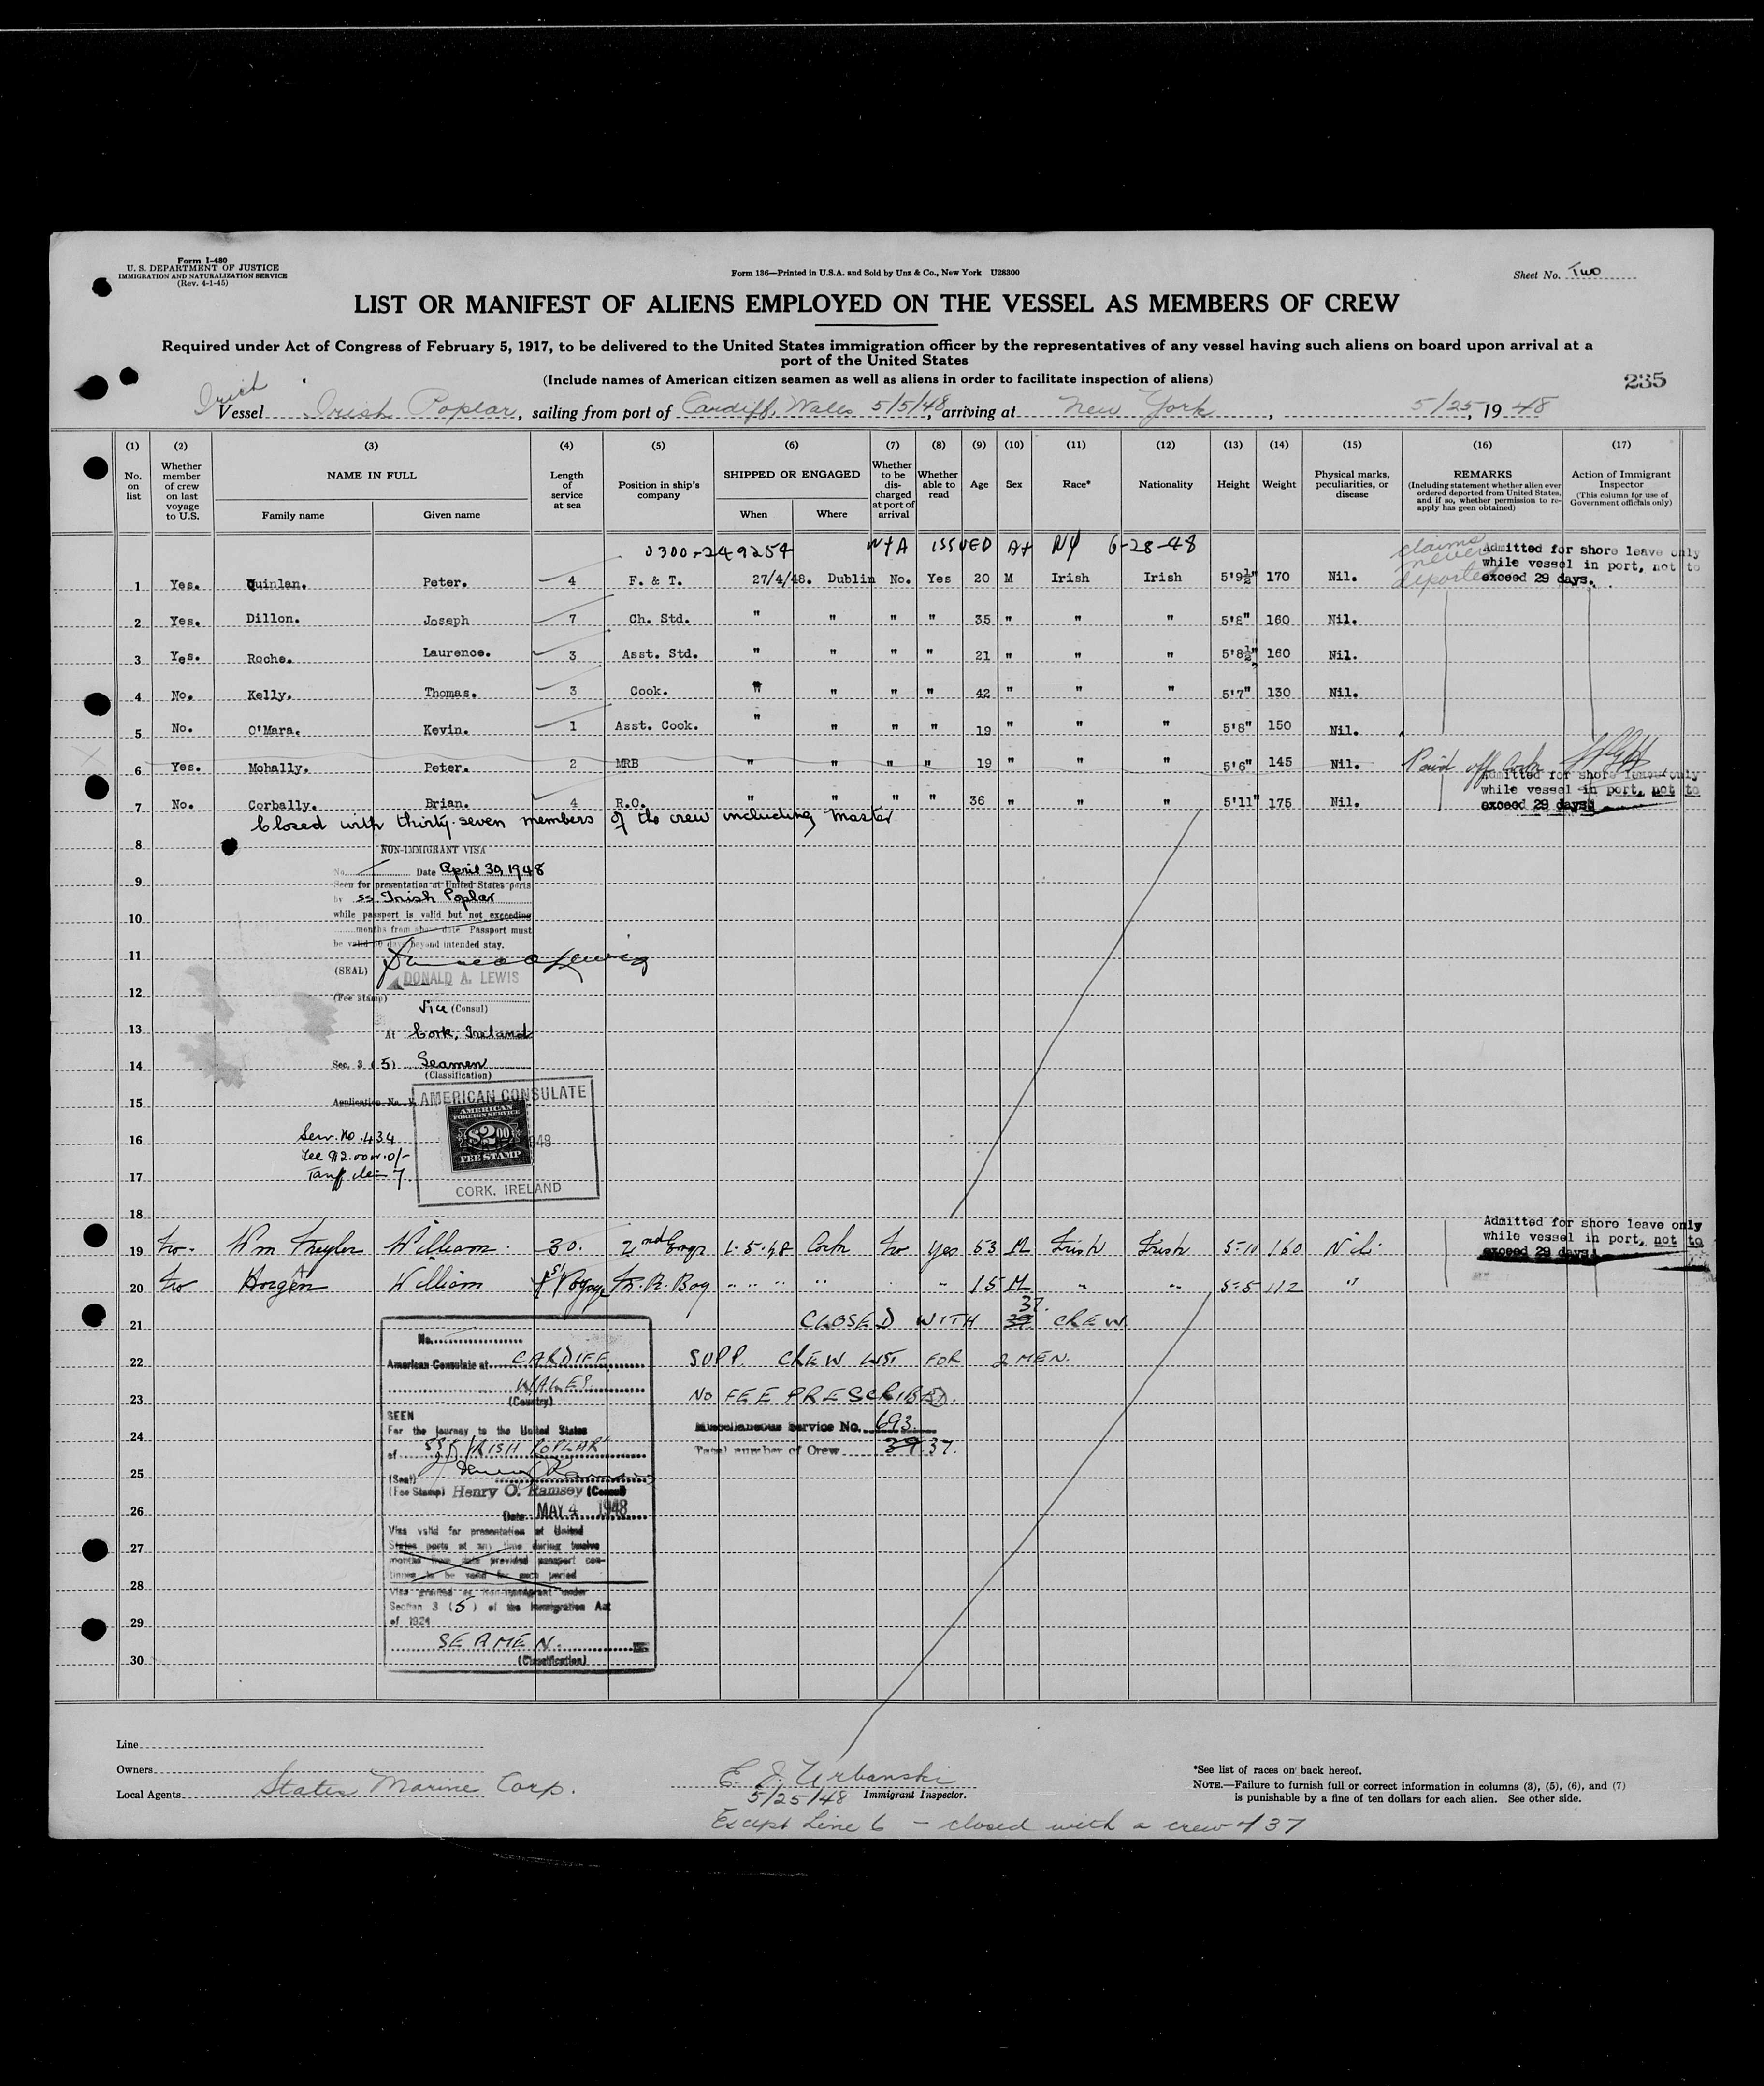 Form I-480
U. S. DEPARTMENT OF JUSTICE
IMMIGRATION AND NATURALIZATION SERVICE
(Rev. 4-1-45)
Form 136—Printed in U.S.A. and Sold by Unz & Co., New York U28300
Sheet No. Two
LIST OR MANIFEST OF ALIENS EMPLOYED ON THE VESSEL AS MEMBERS OF CREW
Required under Act of Congress of February 5, 1917, to be delivered to the United States immigration officer by the representatives of any vessel having such aliens on board upon arrival at a
port of the United States
(Include names of American citizen seamen as well as aliens in order to facilitate inspection of aliens)
235
Irish
Vessel Irish Poplar, sailing from port of Cardiff, Wales 5/5/48, arriving at New York, 5/25, 1948
(1) (2) (3) (4) (5) (6) (7) (8) (9) (10) (11) (12) (13) (14) (15) (16) (17)
No. on list
Whether member of crew on last voyage to U.S.
NAME IN FULL
Family name
Given name
Length of service at sea
Position in ship's company
SHIPPED OR ENGAGED
When
Where
Whether to be discharged at port of arrival
Whether able to read
Age
Sex
Race*
Nationality
Height
Weight
Physical marks, peculiarities, or disease
REMARKS
(Including statement whether alien ever ordered deported from United States, and if so, whether permission to reapply has geen obtained)
Action of Immigrant Inspector
(This column for use of Government officials only)
0300-249254 issued At NY 6-28-48
claims never deported
Admitted for shore leave only
while vessel in port, not to
exceed 29 days.
1 Yes. Quinlan. Peter. 4 F. & T. 27/4/48. Dublin No. Yes 20 M Irish Irish 5'9½" 170 Nil.
2 Yes. Dillon. Joseph 7 Ch. Std. " " " " 35 " " " 5'8" 160 Nil.
3 Yes. Roche. Laurence. 3 Asst. Std. " " " " 21 " " " 5'8½" 160 Nil.
4 No. Kelly. Thomas. 3 Cook. " " " " 42 " " " 5'7" 130 Nil.
5 No. O'Mara. Kevin. 1 Asst. Cook. " " " " 19 " " " 5'8" 150 Nil.
6 Yes. Mohally. Peter. 2 MRB " " " " 19 " " " 5'6" 145 Nil. Paid off Cork
Admitted for shore leave only
while vessel in port, not to
exceed 29 days.
7 No. Corbally. Brian. 4 R.O. " " " " 36 " " " 5'11" 175 Nil.
Closed with thirty-seven members of the crew including master
8
NON-IMMIGRANT VISA
No. Date April 30, 1948
9
Seen for presentation at United States ports
by ss. Irish Poplar
10
while passport is valid but not exceeding
months from above date. Passport must
be valid 60 days beyond intended stay.
11
(SEAL)
DONALD A. LEWIS
12
(Fee stamp)
Vice (Consul)
13
At Cork, Ireland
14
Sec. 3 (5) Seamen
(Classification)
15
Application No.
AMERICAN CONSULATE
AMERICAN
FOREIGN SERVICE
$2.00
FEE STAMP
CORK, IRELAND
16
Serv. No. 434
Fee $2.00
17
18
Admitted for shore leave only
while vessel in port, not to
exceed 29 days.
19 No. William. 30. 2nd Engr 1-5-48 Cork No Yes 53 M Irish Irish 5-11 160 Nil.
20 No Horgan William 1st Voyage M.R. Boy " " " " " 15 M " " 5-5 112 "
21
CLOSED WITH 37. CREW.
No.
22
American Consulate at CARDIFF
SUPP. CREW LIST FOR 2 MEN.
WALES.
(Country)
23
NO FEE PRESCRIBED.
SEEN
For the journey to the United States
Miscellaneous Service No. 693.
24
of SS IRISH POPLAR
Total number of Crew 39 37.
25
(Seal)
(Fee Stamp) Henry O. Ramsey (Consul)
26
Date MAY 4 1948
Visa valid for presentation at United
27
States ports at any time during twelve
months from date provided passport con-
tinues to be valid for such period
28
Visa granted as non-immigrant under
Section 3 (5) of the Immigration Act
29
of 1924
SEAMEN.
30
(Classification)
Line
Owners
Local Agents States Marine Corp.
E. J. Urbanski
5/25/48 Immigrant Inspector.
Except Line 6 – closed with a crew of 37
*See list of races on back hereof.
NOTE.—Failure to furnish full or correct information in columns (3), (5), (6), and (7)
is punishable by a fine of ten dollars for each alien. See other side.